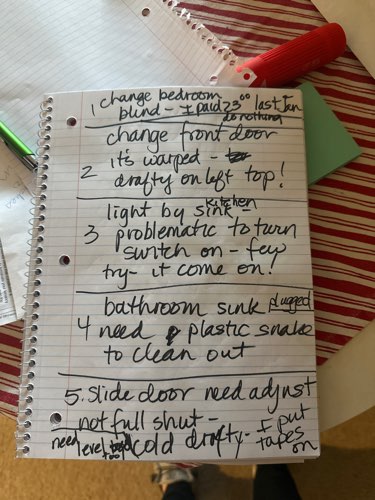 change bedroom
1 blind - I paid 23⁰⁰ last Jan
do nothing
change front door
2 it's warped -
drafty on left top!
light by kitchen sink -
3 problematic to turn
switch on - few
try - it come on!
bathroom sink plugged
4 need plastic snake
to clean out
5. Slide door need adjust
not full shut -
need level too cold drafty - I put
tapes on